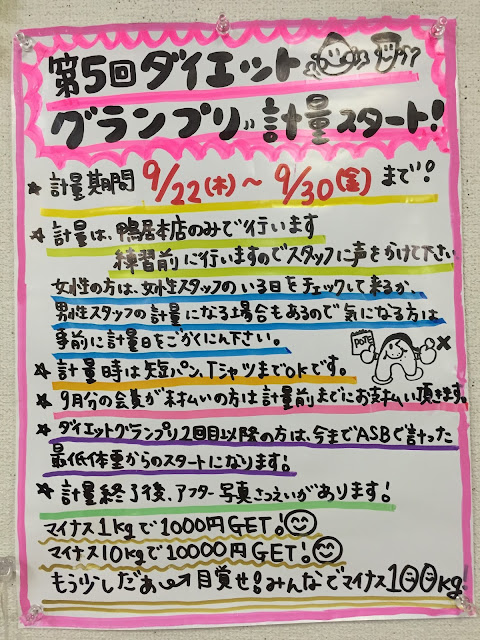 第5回ダイエット
グランプリ 計量スタート!
★ 計量期間 9/22(木)~9/30(金)まで!!
★ 計量は、鴨居本店のみで行います
練習前に行いますのでスタッフに声をかけて下さい
女性の方は、女性スタッフのいる日をチェックして来るか、
男性スタッフの計量になる場合もあるので気になる方は
事前に計量日をごかくにん下さい。
POTE
★ 計量時は短パン、TシャツまでOKです。
★ 9月分の会費が未払いの方は計量前までにお支払い頂きます。
★ ダイエットグランプリ2回目以降の方は、今までASBで計った
最低体重からのスタートになります!
★ 計量終了後、アフター写真さつえいがあります!
マイナス1kgで1000円GET!
マイナス10kgで10000円GET!
もう少しだぁ 目覚せ!みんなでマイナス100kg!